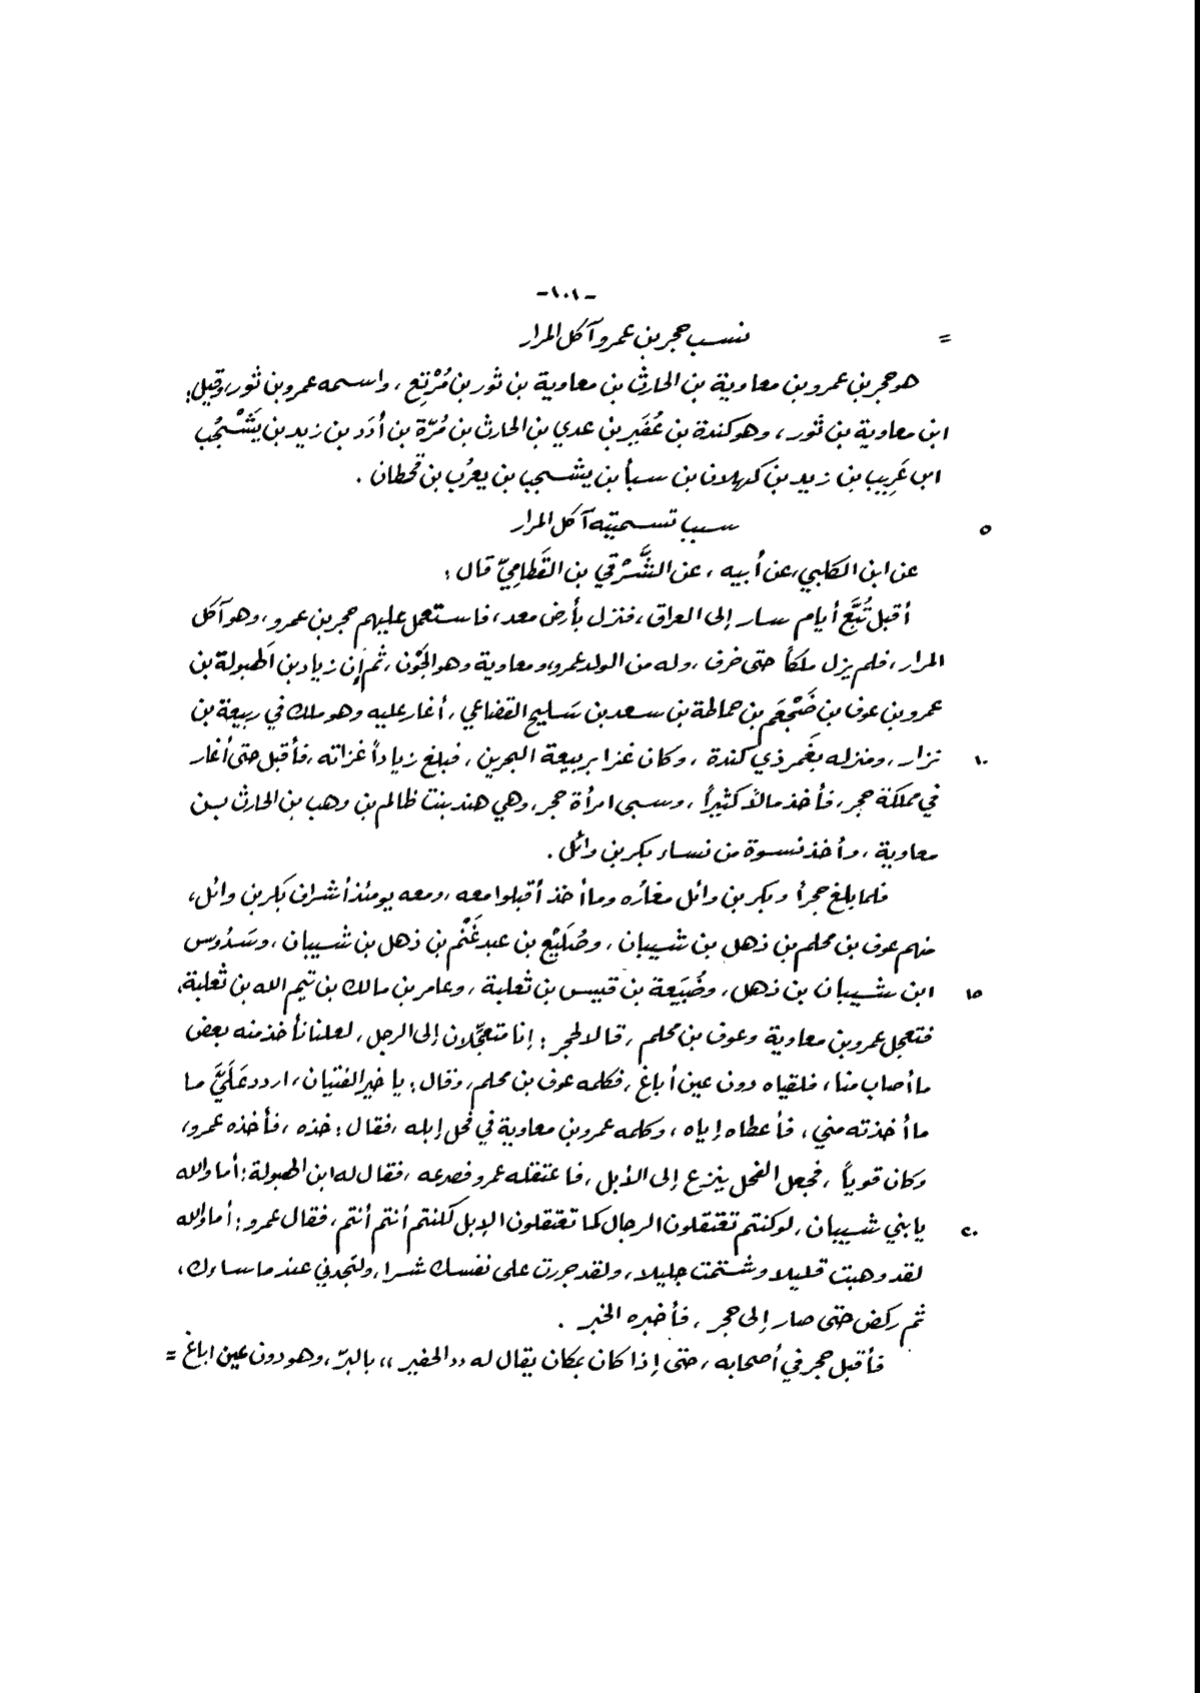 -١٠١-
= نسب حجر بن عمرو آكل المرار
هو حجر بن عمرو بن معاوية بن الحارث بن معاوية بن ثور بن مُرْتِع ، واسمه عمرو بن ثور، وقيل:
ابن معاوية بن ثور ، وهو كندة بن عُفَير بن عدي بن الحارث بن مُرّة بن أُدَد بن زيد بن يَشْجُب
ابن عَرِيب بن زيد بن كهلان بن سبأ بن يشجب بن يعرُب بن قحطان .
٥ سبب تسميته آكل المرار
عن ابن الكلبي، عن أبيه ، عن الشَّرْقي بن القَطامِيّ قال :
أقبل تُبَّع أيام سار إلى العراق ، فنزل بأرض معد ، فاستعمل عليهم حجر بن عمرو ، وهو آكل
المرار ، فلم يزل ملكاً حتى خرف ، وله من الولد عمرو، ومعاوية وهو الجَوْن ، ثم إن زياد بن الهبولة بن
عمرو بن عوف بن ضَجْعَم بن حماطة بن سعد بن سَليح القضاعي ، أغار عليه وهو ملك في ربيعة بن
١٠ نزار ، ومنزله بغَمر ذي كندة ، وكان غزا بربيعة البحرين ، فبلغ زياداً غزاته ، فأقبل حتى أغار
في مملكة حجر ، فأخذ مالاً كثيراً ، وسبى امرأة حجر ، وهي هند بنت ظالم بن وهب بن الحارث بن
معاوية ، وأخذ نسوة من نساء بكر بن وائل .
فلما بلغ حجراً وبكر بن وائل مغاره وما أخذ أقبلوا معه ، ومعه يومئذ أشراف بكر بن وائل ،
منهم عوف بن محلم بن ذهل بن شيبان ، وصُلَيْع بن عبد غَنْم بن ذهل بن شيبان ، وسَدُوس
١٥ ابن شيبان بن ذهل ، وضُبَيعة بن قيس بن ثعلبة ، وعامر بن مالك بن تيم الله بن ثعلبة،
فتعجل عمرو بن معاوية وعوف بن محلم ، قالا لحجر : إنا متعجِّلان إلى الرجل ، لعلنا نأخذ منه بعض
ما أصاب منا ، فلقياه دون عين أباغ ، فكلمه عوف بن محلم ، وقال : يا خير الفتيان ، اردد عَلَيَّ ما
ما أخذته مني ، فأعطاه إياه ، وكلمه عمرو بن معاوية في فحل إبله ، فقال : خذه ، فأخذه عمرو،
وكان قوياً ، فجعل الفحل ينزع إلى الأبل ، فاعتقله عمرو فصرعه ، فقال له ابن الهبولة : أما والله
٢٠ يا بني شيبان ، لو كنتم تعتقلون الرجال كما تعتقلون الإبل كلنتم أنتم أنتم ، فقال عمرو : أما والله
لقد وهبت قليلا وشتمت جليلا ، ولقد جررت على نفسك شرا ، ولتجدني عند ما ساءك ،
ثم ركض حتى صار إلى حجر ، فأخبره الخبر .
فأقبل حجر في أصحابه ، حتى إذا كان بمكان يقال له ،،الحفير،، بالبرّ ، وهو دون عين اباغ =